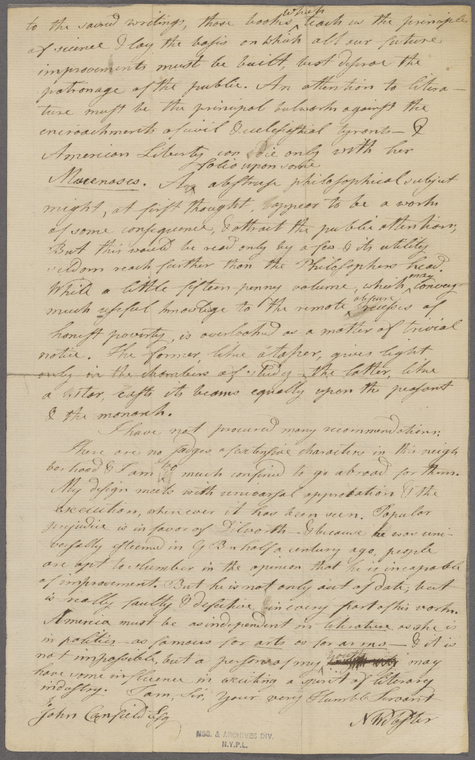 which
to the sacred writings, those books, teach us the principles
of science & lay the basis on which all our future
improvements must be built, best deserve the
patronage of the public. An attention to litera-
ture must be the principal bulwark against the
encroachments of civil & ecclesiastical tyrants — &
American Liberty can die only with her
folio upon some
Maecenases. A abstruse philosophical subject
might, at first thought, appear to be a work
of some consequence, & attract the public attention;
But this would be read only by a few & its utility
seldom reach further than the Philosophers head.
may
While a little fifteen penny volume, which, convey
obscure
much useful knowlege to the remote recesses of
honest poverty, is overlooked as a matter of trivial
notice. The former, like a taper, gives light
only in the chambers of study, the latter, like
a star, casts its beams equally upon the peasant
& the monarch.
I have not procured many recommendations;
there are no judges of extensive characters in this neigh
too
borhood & I am much confined to go abroad for them.
My design meets with universal approbation & the
execution, wherever it has been seen. Popular
prejudice is in favor of Dilworth — & because he was uni-
versally esteemed in G B n half a century ago, people
are apt to slumber in the opinion that he is incapable
of improvement. But he is not only out of date; but
is really faulty & defective in every part of his work.
America must be as independent in literature as she is
in politics — as famous for arts as for arms — & it is
not impossible, but a person of my youth may
have some influence in exciting a spirit of literary
industry. I am, Sir, your very Humble Servant
John Canfield Esq N Webster
MSS. & ARCHIVES DIV.
N.Y.P.L.